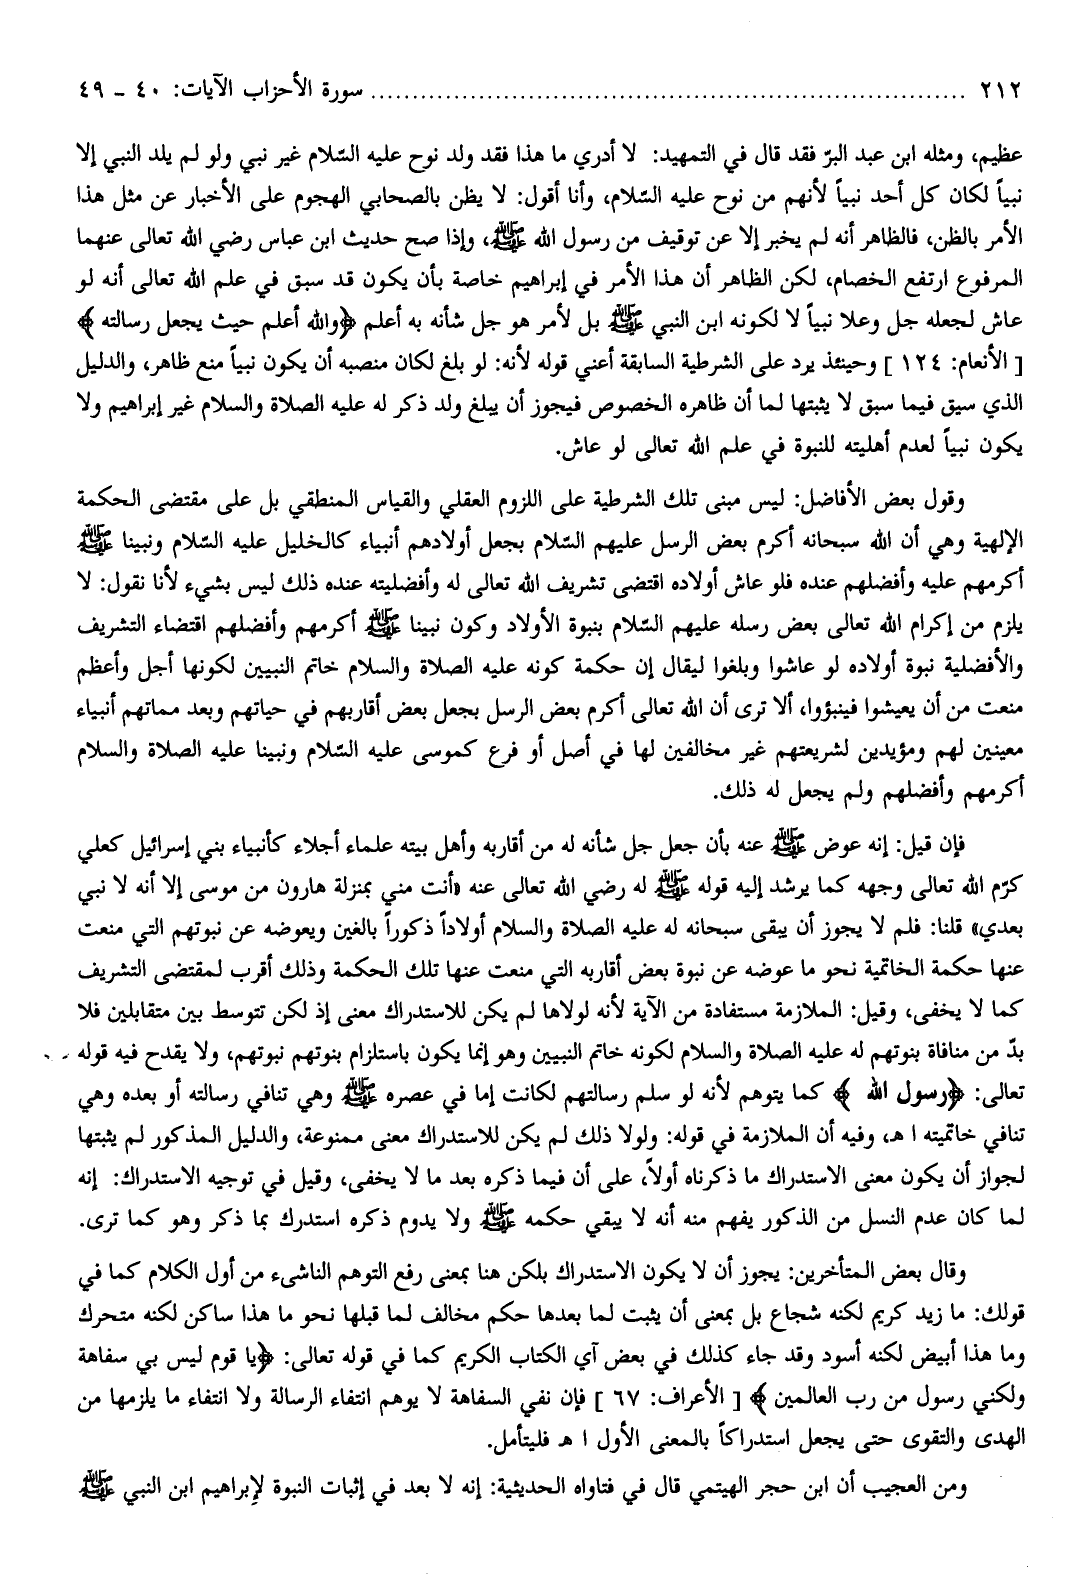 ٢١٢ ........................................................................ سورة الأحزاب الآيات: ٤٠ - ٤٩
عظيم، ومثله ابن عبد البرّ فقد قال في التمهيد: لا أدري ما هذا فقد ولد نوح عليه السّلام غير نبي ولو لم يلد النبي إلا
نبياً لكان كل أحد نبياً لأنهم من نوح عليه السّلام، وأنا أقول: لا يظن بالصحابي الهجوم على الأخبار عن مثل هذا
الأمر بالظن، فالظاهر أنه لم يخبر إلا عن توقيف من رسول الله ﷺ، وإذا صح حديث ابن عباس رضي الله تعالى عنهما
المرفوع ارتفع الخصام، لكن الظاهر أن هذا الأمر في إبراهيم خاصة بأن يكون قد سبق في علم الله تعالى أنه لو
عاش لجعله جل وعلا نبياً لا لكونه ابن النبي ﷺ بل لأمر هو جل شأنه به أعلم ﴿والله أعلم حيث يجعل رسالته﴾
[الأنعام: ١٢٤] وحينئذ يرد على الشرطية السابقة أعني قوله لأنه: لو بلغ لكان منصبه أن يكون نبياً منع ظاهر، والدليل
الذي سيق فيما سبق لا يثبتها لما أن ظاهره الخصوص فيجوز أن يبلغ ولد ذكر له عليه الصلاة والسلام غير إبراهيم ولا
يكون نبياً لعدم أهليته للنبوة في علم الله تعالى لو عاش.
وقول بعض الأفاضل: ليس مبنى تلك الشرطية على اللزوم العقلي والقياس المنطقي بل على مقتضى الحكمة
الإلهية وهي أن الله سبحانه أكرم بعض الرسل عليهم السّلام بجعل أولادهم أنبياء كالخليل عليه السّلام ونبينا ﷺ
أكرمهم عليه وأفضلهم عنده فلو عاش أولاده اقتضى تشريف الله تعالى له وأفضليته عنده ذلك ليس بشيء لأنا نقول: لا
يلزم من إكرام الله تعالى بعض رسله عليهم السّلام بنبوة الأولاد وكون نبينا ﷺ أكرمهم وأفضلهم اقتضاء التشريف
والأفضلية نبوة أولاده لو عاشوا وبلغوا ليقال إن حكمة كونه عليه الصلاة والسلام خاتم النبيين لكونها أجل وأعظم
منعت من أن يعيشوا فينبؤوا، ألا ترى أن الله تعالى أكرم بعض الرسل بجعل بعض أقاربهم في حياتهم وبعد مماتهم أنبياء
معينين لهم ومؤيدين لشريعتهم غير مخالفين لها في أصل أو فرع كموسى عليه السّلام ونبينا عليه الصلاة والسلام
أكرمهم وأفضلهم ولم يجعل له ذلك.
فإن قيل: إنه عوض ﷺ عنه بأن جعل جل شأنه له من أقاربه وأهل بيته علماء أجلاء كأنبياء بني إسرائيل كعلي
كرّم الله تعالى وجهه كما يرشد إليه قوله ﷺ له رضي الله تعالى عنه «أنت مني بمنزلة هارون من موسى إلا أنه لا نبي
بعدي» قلنا: فلم لا يجوز أن يبقى سبحانه له عليه الصلاة والسلام أولاداً ذكوراً بالغين ويعوضه عن نبوتهم التي منعت
عنها حكمة الخاتمية نحو ما عوضه عن نبوة بعض أقاربه التي منعت عنها تلك الحكمة وذلك أقرب لمقتضى التشريف
كما لا يخفى، وقيل: الملازمة مستفادة من الآية لأنه لولاها لم يكن للاستدراك معنى إذ لكن تتوسط بين متقابلين فلا
بدّ من منافاة بنوتهم له عليه الصلاة والسلام لكونه خاتم النبيين وهو إنما يكون باستلزام بنوتهم نبوتهم، ولا يقدح فيه قوله
تعالى: ﴿رسول الله﴾ كما يتوهم لأنه لو سلم رسالتهم لكانت إما في عصره ﷺ وهي تنافي رسالته أو بعده وهي
تنافي خاتميته ا هـ، وفيه أن الملازمة في قوله: ولولا ذلك لم يكن للاستدراك معنى ممنوعة، والدليل المذكور لم يثبتها
لجواز أن يكون معنى الاستدراك ما ذكرناه أولاً، على أن فيما ذكره بعد ما لا يخفى، وقيل في توجيه الاستدراك: إنه
لما كان عدم النسل من الذكور يفهم منه أنه لا يبقي حكمه ﷺ ولا يدوم ذكره استدرك بما ذكر وهو كما ترى.
وقال بعض المتأخرين: يجوز أن لا يكون الاستدراك بلكن هنا بمعنى رفع التوهم الناشىء من أول الكلام كما في
قولك: ما زيد كريم لكنه شجاع بل بمعنى أن يثبت لما بعدها حكم مخالف لما قبلها نحو ما هذا ساكن لكنه متحرك
وما هذا أبيض لكنه أسود وقد جاء كذلك في بعض آي الكتاب الكريم كما في قوله تعالى: ﴿يا قوم ليس بي سفاهة
ولكني رسول من رب العالمين﴾ [الأعراف: ٦٧] فإن نفي السفاهة لا يوهم انتفاء الرسالة ولا انتفاء ما يلزمها من
الهدى والتقوى حتى يجعل استدراكاً بالمعنى الأول ا هـ فليتأمل.
ومن العجيب أن ابن حجر الهيتمي قال في فتاواه الحديثية: إنه لا بعد في إثبات النبوة لإبراهيم ابن النبي ﷺ